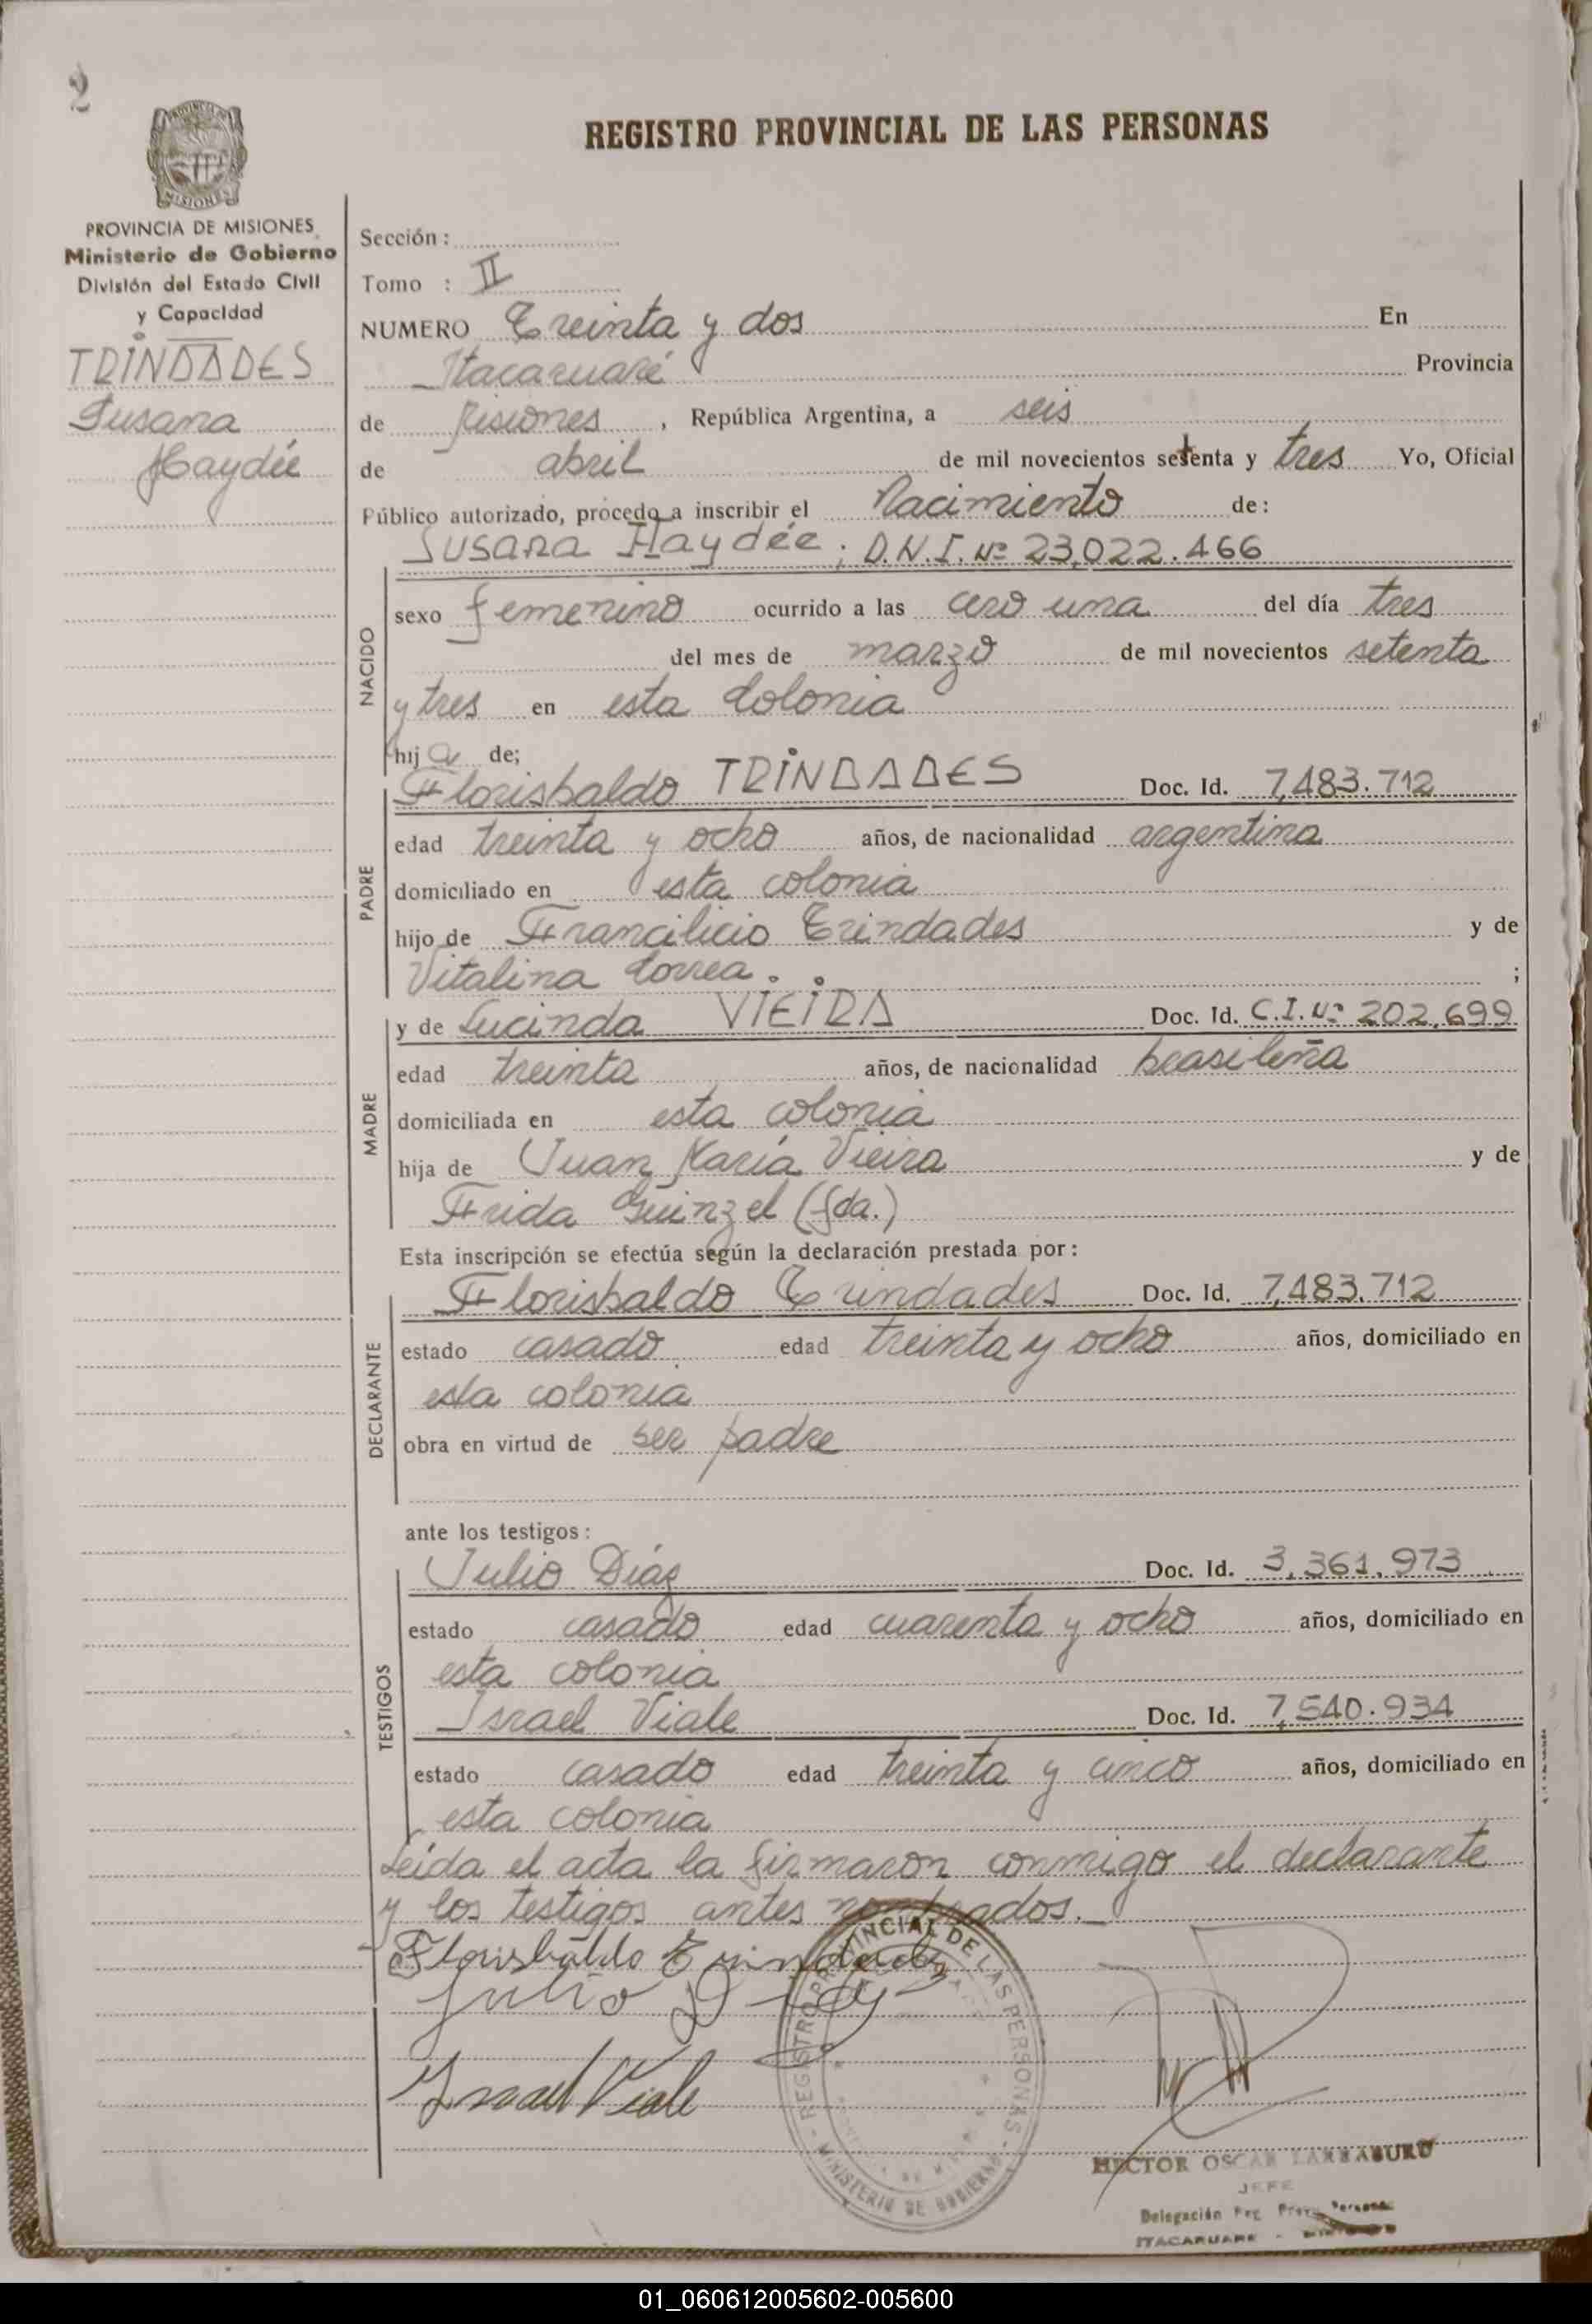 2
PROVINCIA DE MISIONES
PROVINCIA DE MISIONES
Ministerio de Gobierno
División del Estado Civil
y Capacidad
TRINDADES
Susana
Haydée
REGISTRO PROVINCIAL DE LAS PERSONAS
Sección :
Tomo : II
NUMERO Treinta y dos En
Itacaruaré Provincia
de Misiones , República Argentina, a seis
de abril de mil novecientos setenta y tres Yo, Oficial
Público autorizado, procedo a inscribir el Nacimiento de:
Susana Haydée; D.N.I. Nº 23,022.466
NACIDO
sexo femenino ocurrido a las cero una del día tres
del mes de marzo de mil novecientos setenta
y tres en esta Colonia
hija de;
PADRE
Florisbaldo TRINDADES Doc. Id. 7,483.712
edad treinta y ocho años, de nacionalidad argentina
domiciliado en esta colonia
hijo de Francilicio Trindades y de
Vitalina Correa. ;
MADRE
y de Lucinda VIEIRA Doc. Id. C.I. Nº 202,699
edad treinta años, de nacionalidad brasileña
domiciliada en esta colonia
hija de Juan María Vieira y de
Frida Guinzel (fda.)
Esta inscripción se efectúa según la declaración prestada por :
DECLARANTE
Florisbaldo Trindades Doc. Id. 7,483.712
estado casado edad treinta y ocho años, domiciliado en
esta colonia
obra en virtud de ser padre
ante los testigos :
TESTIGOS
Julio Díaz Doc. Id. 3,361.973
estado casado edad cuarenta y ocho años, domiciliado en
esta colonia
Israel Viale Doc. Id. 7,540.934
estado casado edad treinta y cinco años, domiciliado en
esta colonia
Leída el acta la firmaron conmigo el declarante
y los testigos antes nombrados.
Florisbaldo Trindades
Julio Díaz
Israel Viale
REGISTRO PROVINCIAL DE LAS PERSONAS
MINISTERIO DE GOBIERNO
HECTOR OSCAR LARRABURU
JEFE
Delegación Reg. Prov. Personas
ITACARUARE - MISIONES
01_060612005602-005600